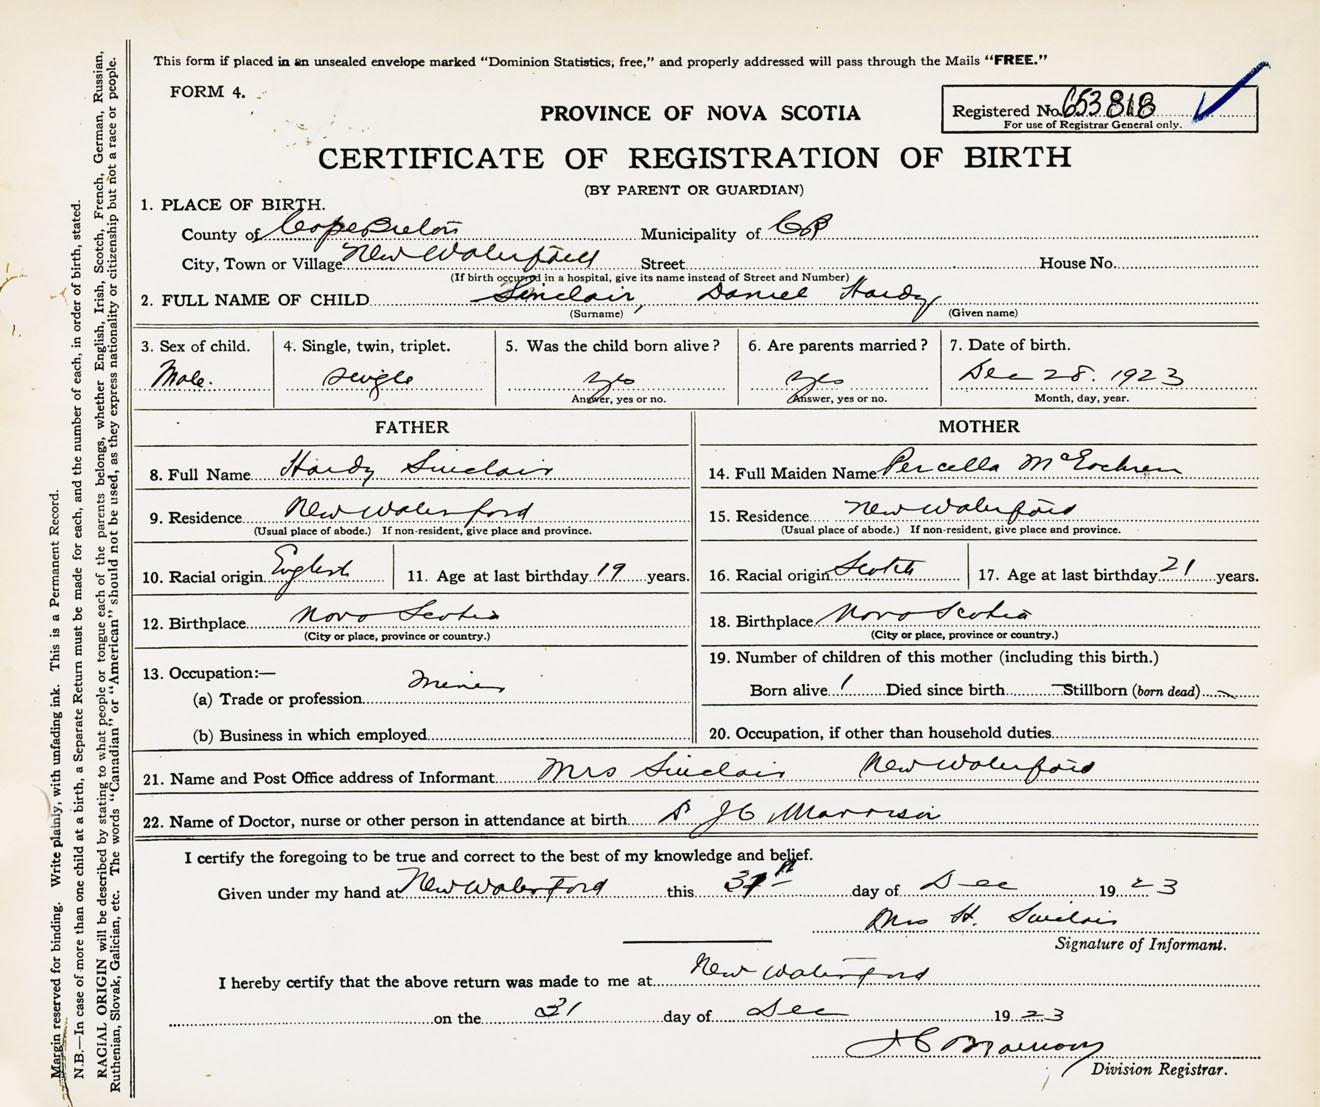 This form if placed in an unsealed envelope marked "Dominion Statistics, free," and properly addressed will pass through the Mails "FREE."
FORM 4.
Registered No. 653818
For use of Registrar General only.
PROVINCE OF NOVA SCOTIA
CERTIFICATE OF REGISTRATION OF BIRTH
(BY PARENT OR GUARDIAN)
1. PLACE OF BIRTH.
County of Cape Breton Municipality of CB
City, Town or Village New Waterford Street House No.
(If birth occurred in a hospital, give its name instead of Street and Number)
2. FULL NAME OF CHILD Sinclair, Daniel Hardy
(Surname) (Given name)
3. Sex of child. 4. Single, twin, triplet. 5. Was the child born alive? 6. Are parents married? 7. Date of birth.
Male. single yes yes Dec 28. 1923
Answer, yes or no. Answer, yes or no. Month, day, year.
FATHER
8. Full Name Hardy Sinclair
9. Residence New Waterford
(Usual place of abode.) If non-resident, give place and province.
10. Racial origin English 11. Age at last birthday 19 years.
12. Birthplace Nova Scotia
(City or place, province or country.)
13. Occupation:—
(a) Trade or profession Miner
(b) Business in which employed
MOTHER
14. Full Maiden Name Percella
15. Residence New Waterford
(Usual place of abode.) If non-resident, give place and province.
16. Racial origin Scotch 17. Age at last birthday 21 years.
18. Birthplace Nova Scotia
(City or place, province or country.)
19. Number of children of this mother (including this birth.)
Born alive 1 Died since birth — Stillborn (born dead)
20. Occupation, if other than household duties
21. Name and Post Office address of Informant Mrs Sinclair New Waterford
22. Name of Doctor, nurse or other person in attendance at birth JC Morrison
I certify the foregoing to be true and correct to the best of my knowledge and belief.
Given under my hand at New Waterford this 31st day of Dec 1923
Mrs H. Sinclair
Signature of Informant.
I hereby certify that the above return was made to me at New Waterford
on the 31 day of Dec 1923
Division Registrar.
Margin reserved for binding. Write plainly, with unfading ink. This is a Permanent Record.
N.B.—In case of more than one child at a birth, a Separate Return must be made for each, and the number of each, in order of birth, stated.
RACIAL ORIGIN will be described by stating to what people or tongue each of the parents belongs, whether English, Irish, Scotch, French, German, Russian,
Ruthenian, Slovak, Galician, etc. The words "Canadian" or "American" should not be used, as they express nationality or citizenship but not a race or people.